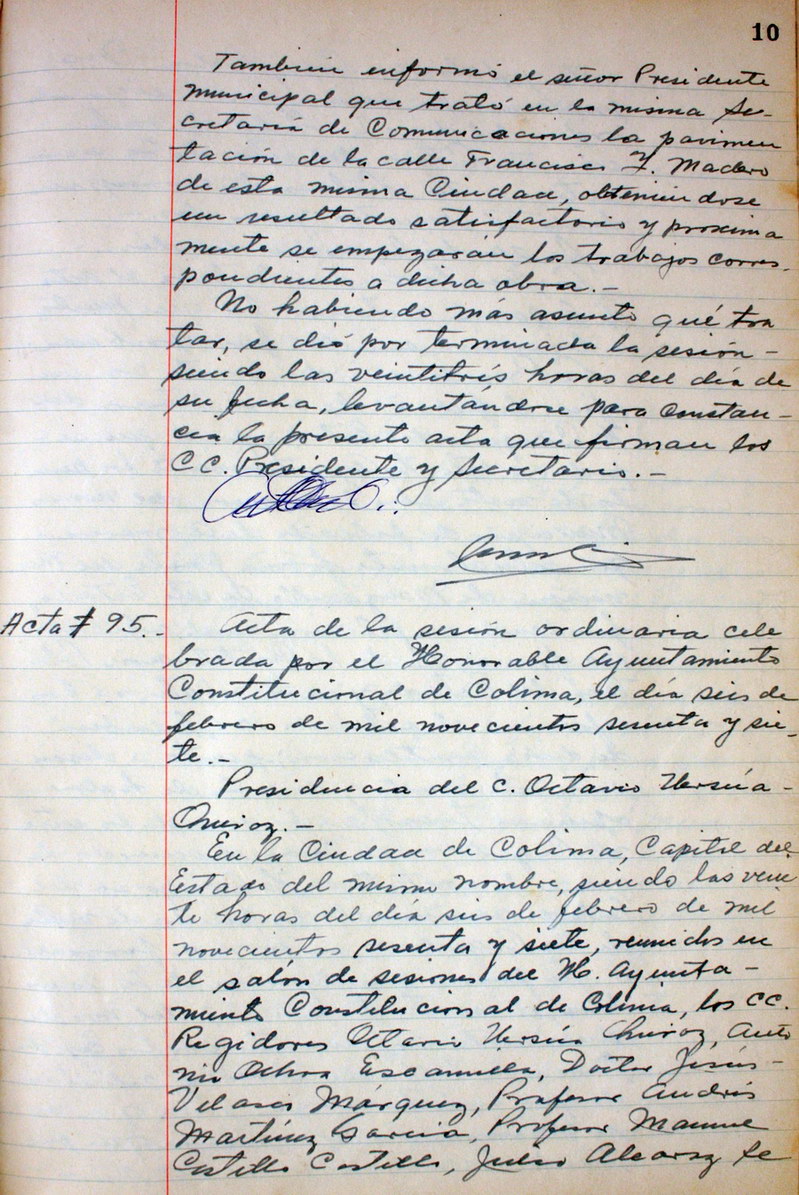 10
Tambien informó el señor Presidente
Municipal que trató en la misma Se-
cretaría de Comunicaciones la pavimen
tación de la calle Francisco I. Madero
de esta misma Ciudad, obteniendose
un resultado satisfactorio y proxima
mente se empezarán los trabajos corres-
pondientes a dicha obra.-
No habiendo más asunto qué tra
tar, se dió por terminada la sesión-
siendo las veintitrés horas del día de
su fecha, levantándose para constan-
cia la presente acta que firman los
CC. Presidente y Secretario.-
Acta # 95.-
Acta de la sesión ordinaria cele
brada por el Honorable Ayuntamiento
Constitucional de Colima, el día seis de
febrero de mil novecientos sesenta y sie-
te.-
Presidencia del C. Octavio Ursúa-
Quiroz.-
En la Ciudad de Colima, Capital del
Estado del mismo nombre, siendo las vein
te horas del día seis de febrero de mil
novecientos sesenta y siete, reunidos en
el salón de sesiones del H. Ayunta-
miento Constitucional de Colima, los CC.
Regidores Octavio Ursúa Quiroz, Anto
nio Ochoa Escamilla, Doctor Jesús-
Velasco Márquez, Profesor Andrés
Martínez García, Profesor Manuel
Castillo Castillo, Julio Alcaraz Se